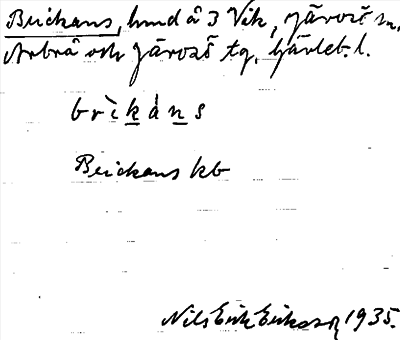 Brickans, hmd å 3 Vik, Järvsö sn,
Arbrå och Järvsö tg, Gävleb. l.
brìkáns
Brickans kb
Nils Erik Eriksson 1935.